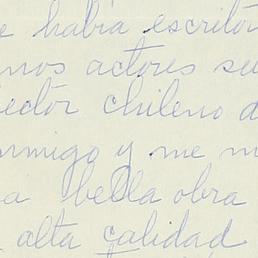 e había escrito
nos actores su
ector chileno d
ormigo y me m
a bella obra
alta calidad